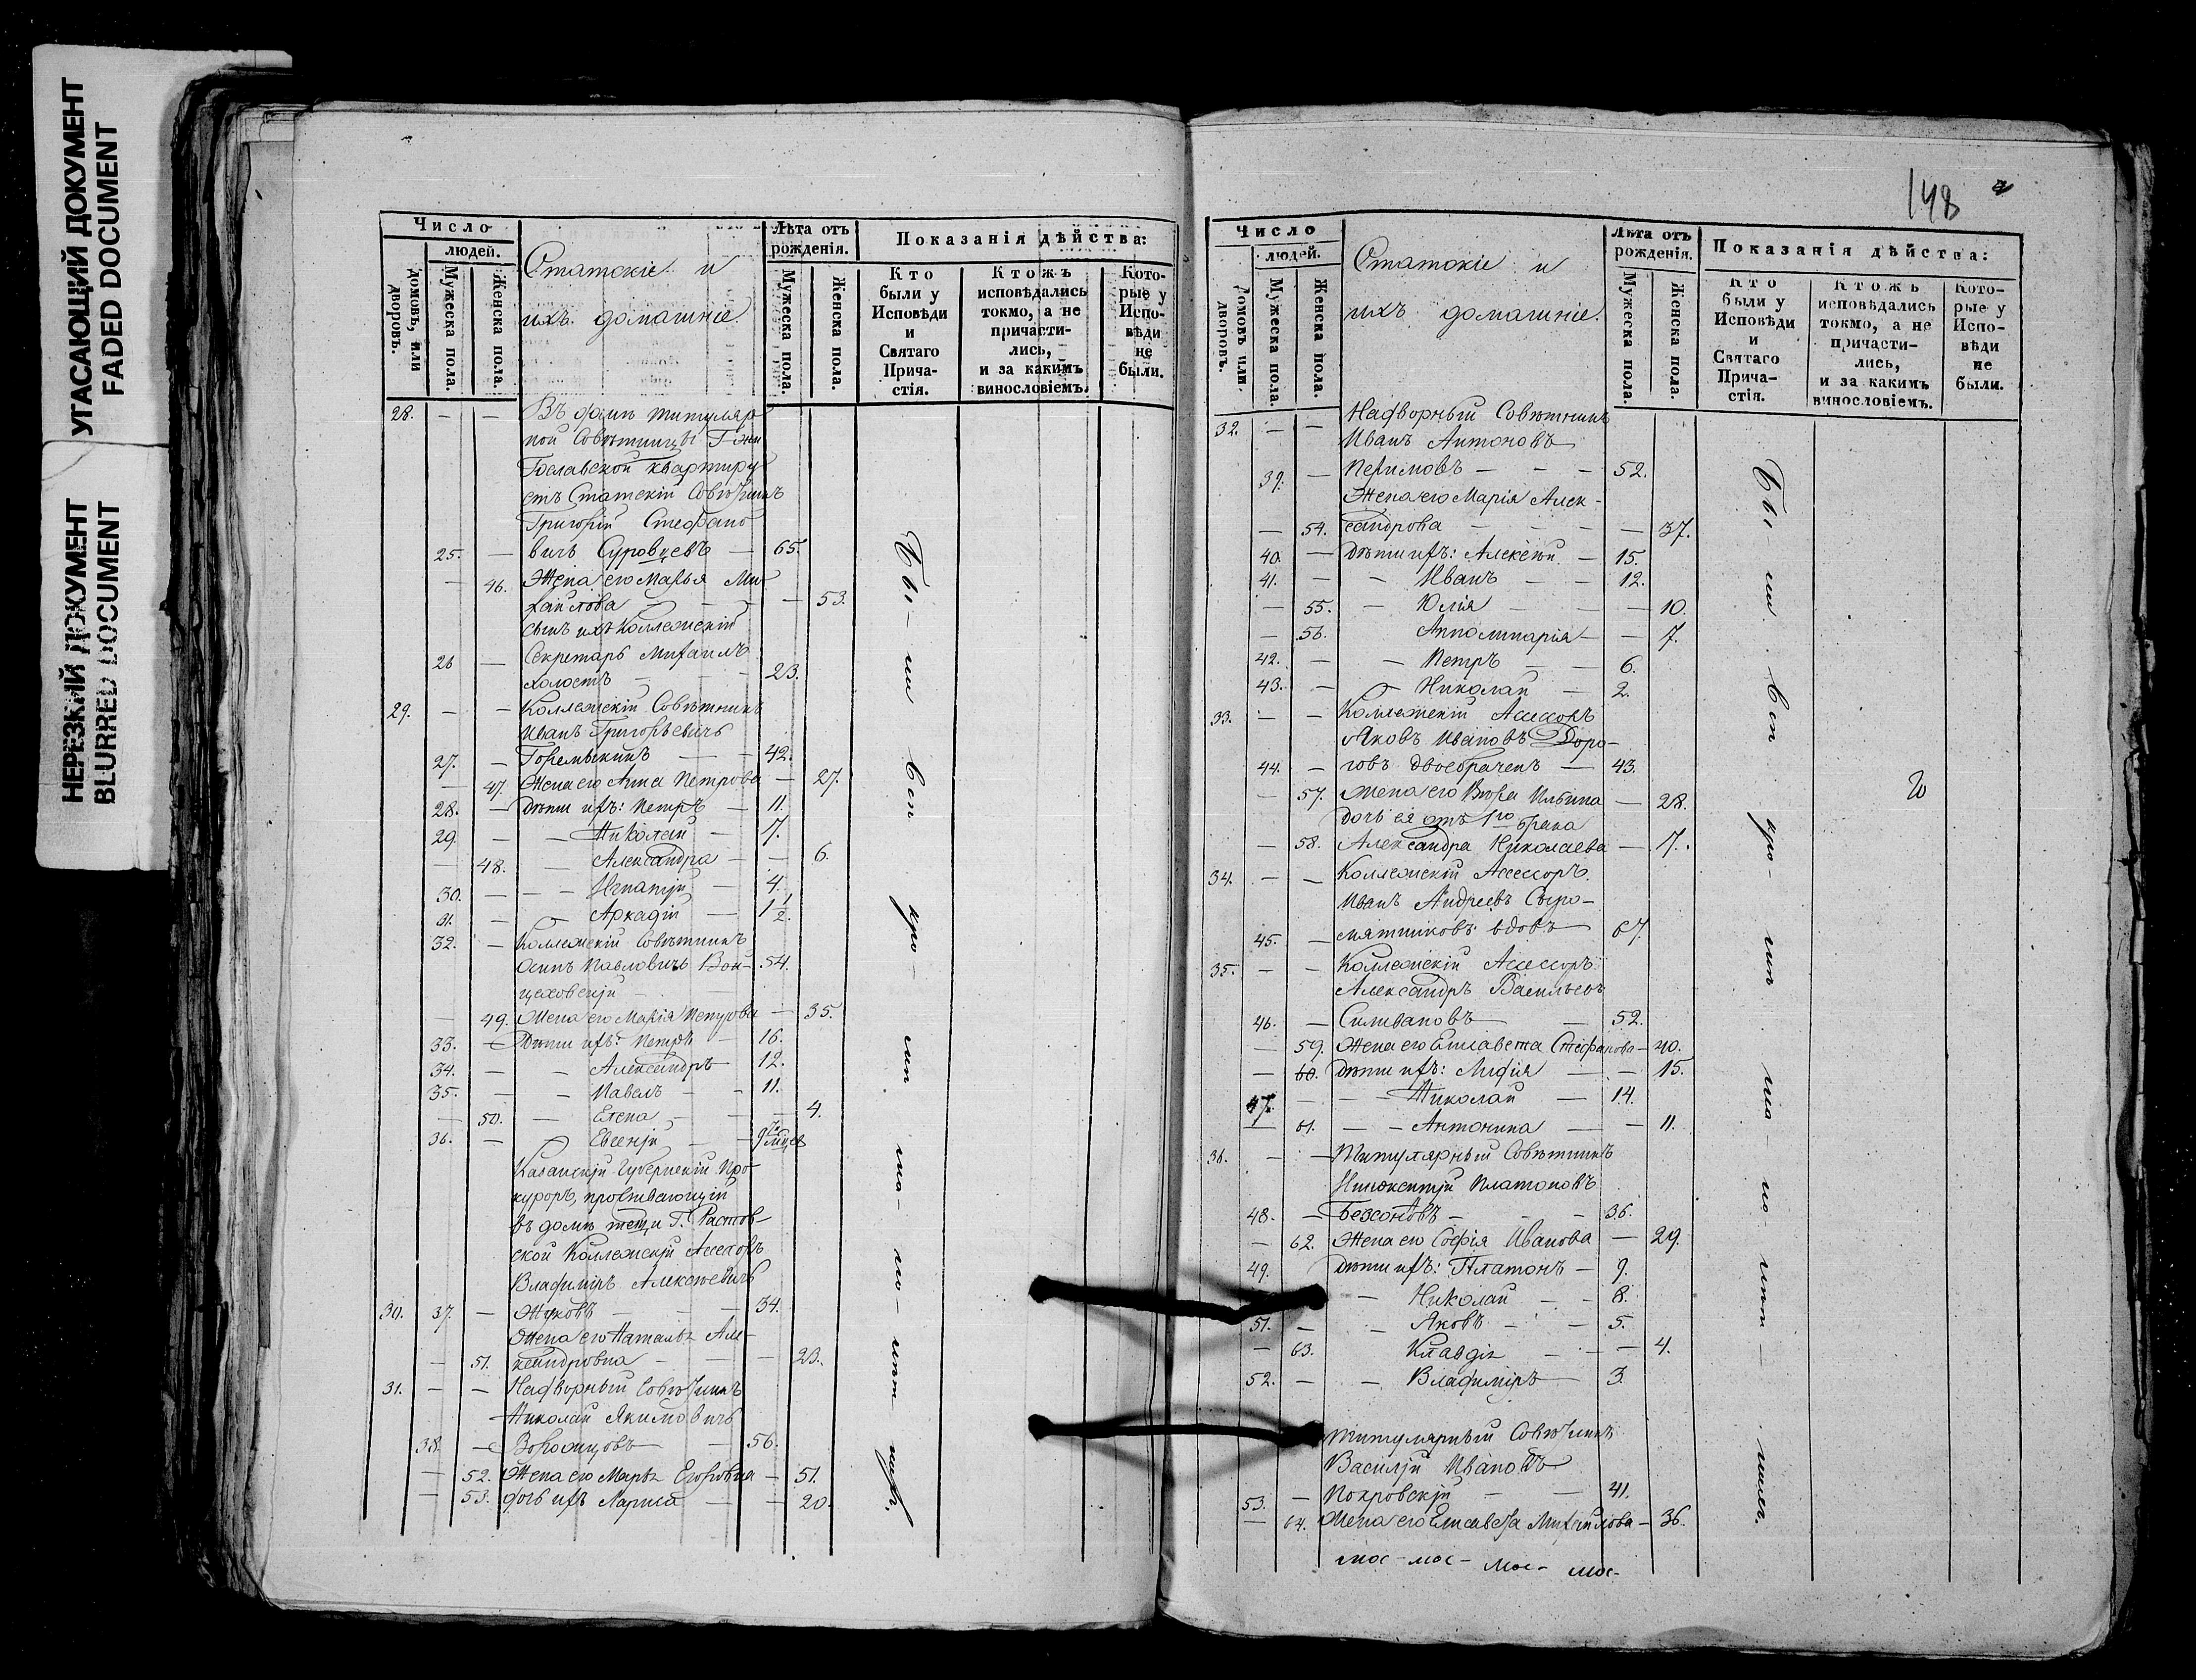 УГАСАЮЩИЙ ДОКУМЕНТ
FADED DOCUMENT
НЕРЕЗКИЙ ДОКУМЕНТ
BLURRED DOCUMENT
Число
людей.
домовъ, или дворовъ.
Мужеска пола.
Женска пола.
Статскіе и
ихъ домашніе.
Лѣта отъ рожденія.
Мужеска пола.
Женска пола.
Показанія дѣйства:
Кто были у Исповѣди и Святаго Причастія.
Ктожъ исповѣдались токмо, а не причастились, и за какимъ винословіемъ.
Которые у Исповѣди не были.
28. — — Въ домѣ титуляр
ной Совѣтницы Г-жи
квартиру
етъ Статскій Совѣтникъ
Григорій Стефано
25. — вичъ Суровцевъ — 65.
— 46. Жена его Марья Ми
хайлова — — 53.
Сынъ ихъ Коллежскій
26 — Секретарь Михаилъ
холостъ — — 23.
29. — — Коллежскій Совѣтникъ
Иванъ Григорьевичъ
27. — Горемыкинъ — 42.
— 47. Жена его Анна Петрова — 27.
28. — Дѣти ихъ: Петръ — 11.
29. — — Николай — 7.
— 48. Александра — — 6.
30. — — — Игнатій — 4.
31. — Аркадій — 1 1/2.
32. — Коллежскій Совѣтникъ
Осипъ Павловичъ Вой- 54.
цеховскій —
— 49. Жена его Марія Петрова — 35.
33. — Дѣти ихъ: Петръ — 16.
34. — — Александръ 12.
35. — — Павелъ — 11.
— 50. — Елена — — 4.
36. — Евгеній — 9ти мцев
Казанскій Губернскій Про-
куроръ, проживающій
въ домѣ тещи Г. Растов-
ской Коллежскій Ассесоръ
Владиміръ Алексѣевичъ
30. 37. — Жуковъ — — 34.
Жена его Наталья Але-
— 51. ксандровна — — 23.
31. — — Надворный Совѣтникъ
Николай Якимовичъ
38. — — 56.
— 52. Жена его Марья Егоровна — 51.
— 53. дочь ихъ Лариса — — 20.
Бы-ли всп
148
Число
людей.
домовъ или дворовъ.
Мужеска пола.
Женска пола.
Статскіе и
ихъ домашніе.
Лѣта отъ рожденія.
Мужеска пола.
Женска пола.
Показанія дѣйства:
Кто были у Исповѣди и Святаго Причастія.
Ктожъ исповѣдались токмо, а не причастились, и за какимъ винословіемъ.
Которые у Исповѣди не были.
32. — — Надворный Совѣтникъ
Иванъ Антоновъ
39. — — — 52.
Жена его Марія Алек-
— 54. сандрова — — 37.
40. — Дѣти ихъ: Алексѣй — 15.
41. — — Иванъ — — 12.
— 55. — Юлія — — 10.
— 56. Апполинарія — — 7.
42. — — Петръ — — 6.
43. — — Николай — 2.
33. — — Коллежскій Ассесоръ
Яковъ Ивановъ Доро-
44. — говъ двоебраченъ — 43.
— 57. Жена его Вѣра Ильина — 28.
дочь ея отъ 1го брака
— 58. Александра Николаева — 7.
34. — — Коллежскій Ассесоръ
Иванъ Андреевъ Сыро-
45. — мятниковъ вдовъ — 67.
35. — — Коллежскій Ассесоръ
Александръ Васильевъ
46. — Силивановъ — 52.
— 59. Жена его Елисавета Стефанова — 40.
— 60. Дѣти ихъ: Лидія — — 15.
47. — — Николай — 14.
— 61. — — Антонина — — 11.
36. — — Титулярный Совѣтникъ
Иннокентій Платоновъ
48. — Безсоновъ — — 36.
— 62. Жена его Софія Иванова — 29.
49. Дѣти ихъ: Платонъ — 9.
— Николай — — 8.
51. — — Яковъ — — 5.
— 63. Клавдія — — 4.
52. — — Владиміръ — 3.
Титулярный Совѣтникъ
Василій Ивановъ
53. — Покровскій — — 41.
— 64. Жена его Елисавета Михайлова — 36.
Бы-ли всп